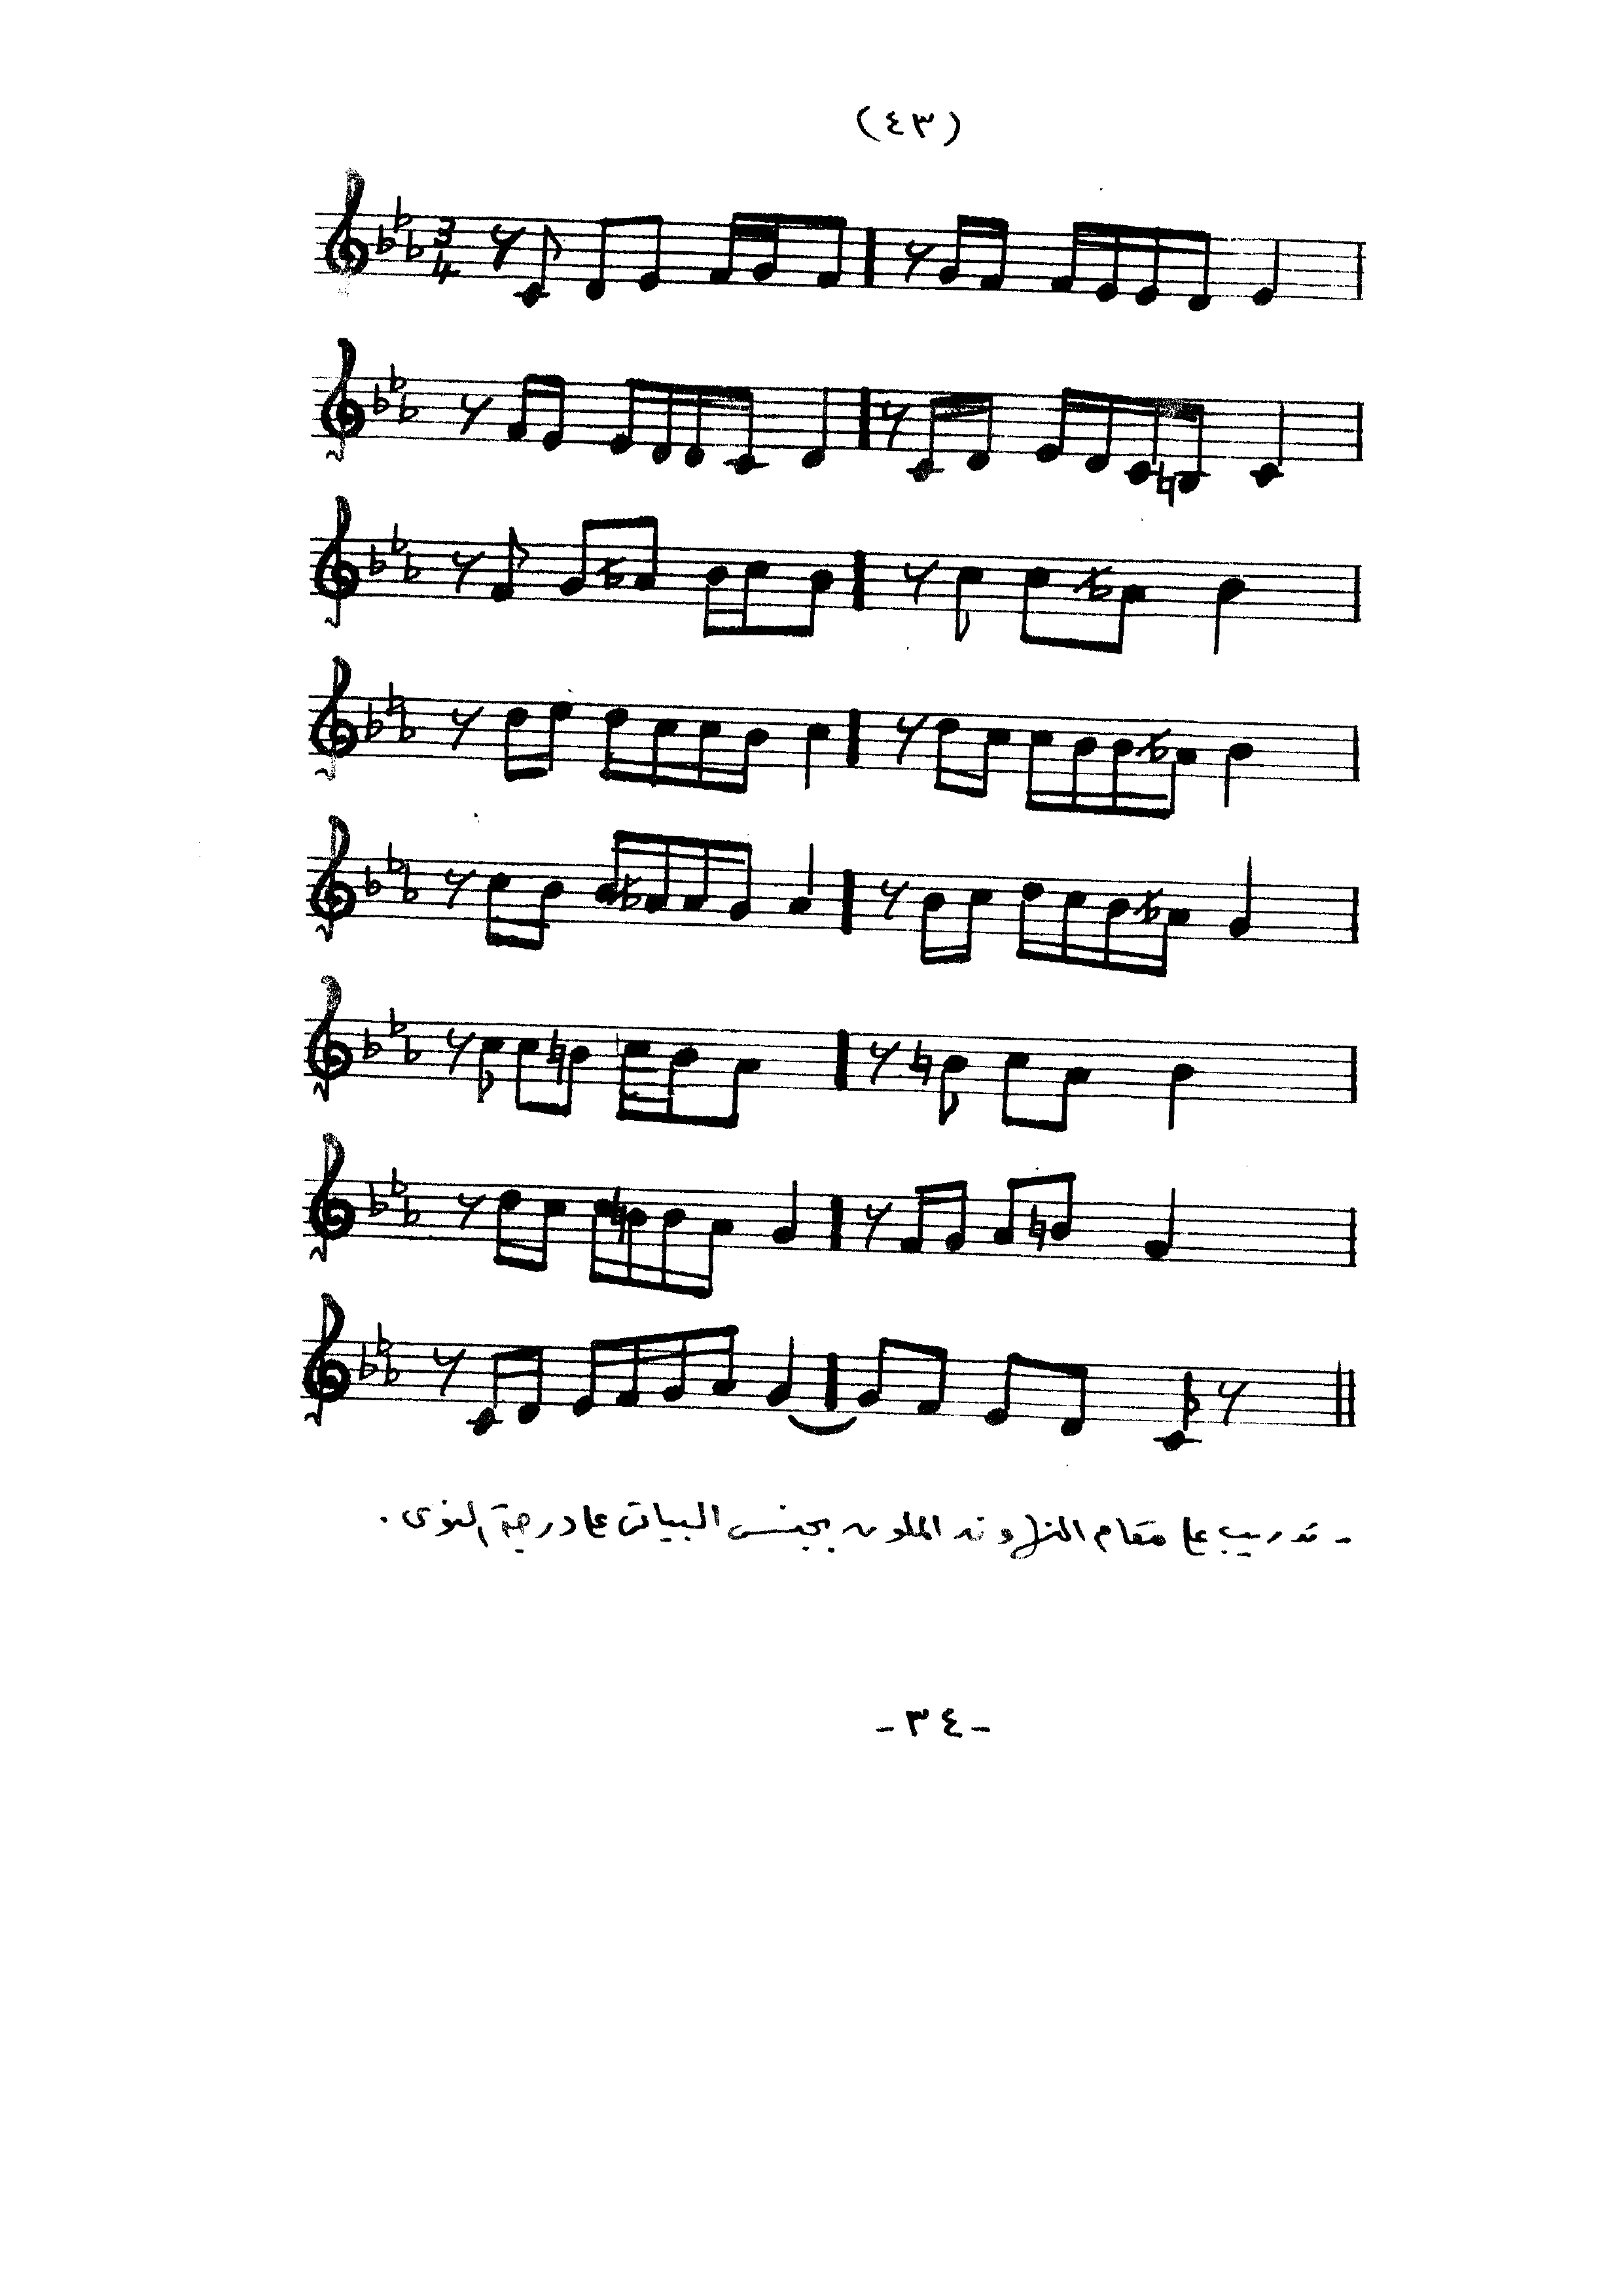 (٤٣)
3
4
- تدريب على مقام النهاوند الملون بجنس البياتى على درجة النوى .
- ٣٤ -